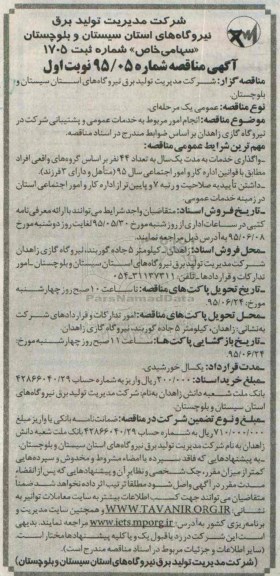 شرکت مدیریت تولید برق
نیروگاه‌های استان سیستان و بلوچستان
«سهامی خاص» شماره ثبت ۱۷۰۵
آگهی مناقصه شماره ۹۵/۰۵ نوبت اول
مناقصه گزار: شرکت مدیریت تولید برق نیروگاه‌های استان سیستان و
بلوچستان
نوع مناقصه: عمومی یک مرحله‌ای.
موضوع مناقصه: انجام امور مربوط به خدمات عمومی و پشتیبانی شرکت در
نیروگاه گازی زاهدان بر اساس ضوابط مندرج در اسناد مناقصه.
مهم ترین شرایط عمومی مناقصه:
ـ واگذاری خدمات به مدت یک سال به تعداد ۴۴ نفر بر اساس گروه‌های واقعی افراد
مطابق با قوانین اداره کار و امور اجتماعی سال ۹۵ (متأهل و دارای ۲ فرزند).
ـ داشتن تأییدیه صلاحیت و رتبه ۷ و پایین تر از اداره کار و امور اجتماعی استان
در زمینه خدمات عمومی.
ـ تاریخ فروش اسناد: متقاضیان واجد شرایط می‌توانند با ارائه معرفی نامه
کتبی در ساعات اداری از روز شنبه مورخ ۹۵/۰۵/۳۰ لغایت روز دوشنبه مورخ
۹۵/۰۶/۰۸ به آدرس ذیل مراجعه نمایند.
ـ محل فروش اسناد: زاهدان، کیلومتر ۵ جاده گوربند، نیروگاه گازی زاهدان
شرکت مدیریت تولید برق نیروگاه‌های استان سیستان و بلوچستان ـ امور
تدارکات و قراردادها ـ تلفن: ۳۱۱۳۷۳۱۱-۰۵۴
ـ تاریخ تحویل پاکت‌های مناقصه: تا ساعت ۱۰ صبح روز چهارشنبه
مورخ: ۹۵/۰۶/۲۴.
ـ محل تحویل پاکت‌های مناقصه: امور تدارکات و قراردادهای شرکت
به نشانی: زاهدان، کیلومتر ۵ جاده گوربند، نیروگاه گازی زاهدان.
ـ تاریخ بازگشایی پاکت‌ها: ساعت ۱۱ صبح روز چهارشنبه مورخ:
۹۵/۰۶/۲۴
ـ مدت قرارداد: یکسال خورشیدی.
ـ مبلغ خرید اسناد: ۲۰۰/۰۰۰ ریال واریز به شماره حساب ۴۲۸۶۶۰۴۰/۲۹
بانک ملت شعبه دانش زاهدان به نام: شرکت مدیریت تولید برق نیروگاه‌های
استان سیستان و بلوچستان.
ـ مبلغ و نوع تضمین شرکت در مناقصه: ضمانت نامه بانکی یا واریز مبلغ
۷۱۰/۰۰۰/۰۰۰ ریال به شماره حساب ۴۲۸۶۶۰۴۰/۲۹ بانک ملت شعبه دانش
زاهدان به نام شرکت مدیریت تولید برق نیروگاه‌های استان سیستان و بلوچستان.
ـ به پیشنهادهایی که فاقد سپرده یا امضاء مشروط و مخدوش و سپرده‌هایی
کمتر از میزان مقرر، چک شخصی و نظایر آن و پیشنهادهایی که پس از انقضاء
مدت مقرر در آگهی واصل شود مطلقا ترتیب اثر داده نخواهد شد. ضمناً
متقاضیان می‌توانند جهت کسب اطلاعات بیشتر به سایت معاملات توانیر به
نشانی WWW.TAVANIR.ORG.IR و همچنین سایت مدیریت و
برنامه‌ریزی کشور به آدرس: www.iets.mporg.ir مراجعه نمایند، بدیهی
است این شرکت در رد یا قبول یک و یا کلیه پیشنهادها مختار است.
(سایر اطلاعات و جزئیات مربوط در اسناد مناقصه مندرج است).
(شرکت مدیریت تولید برق نیروگاه‌های استان سیستان و بلوچستان)